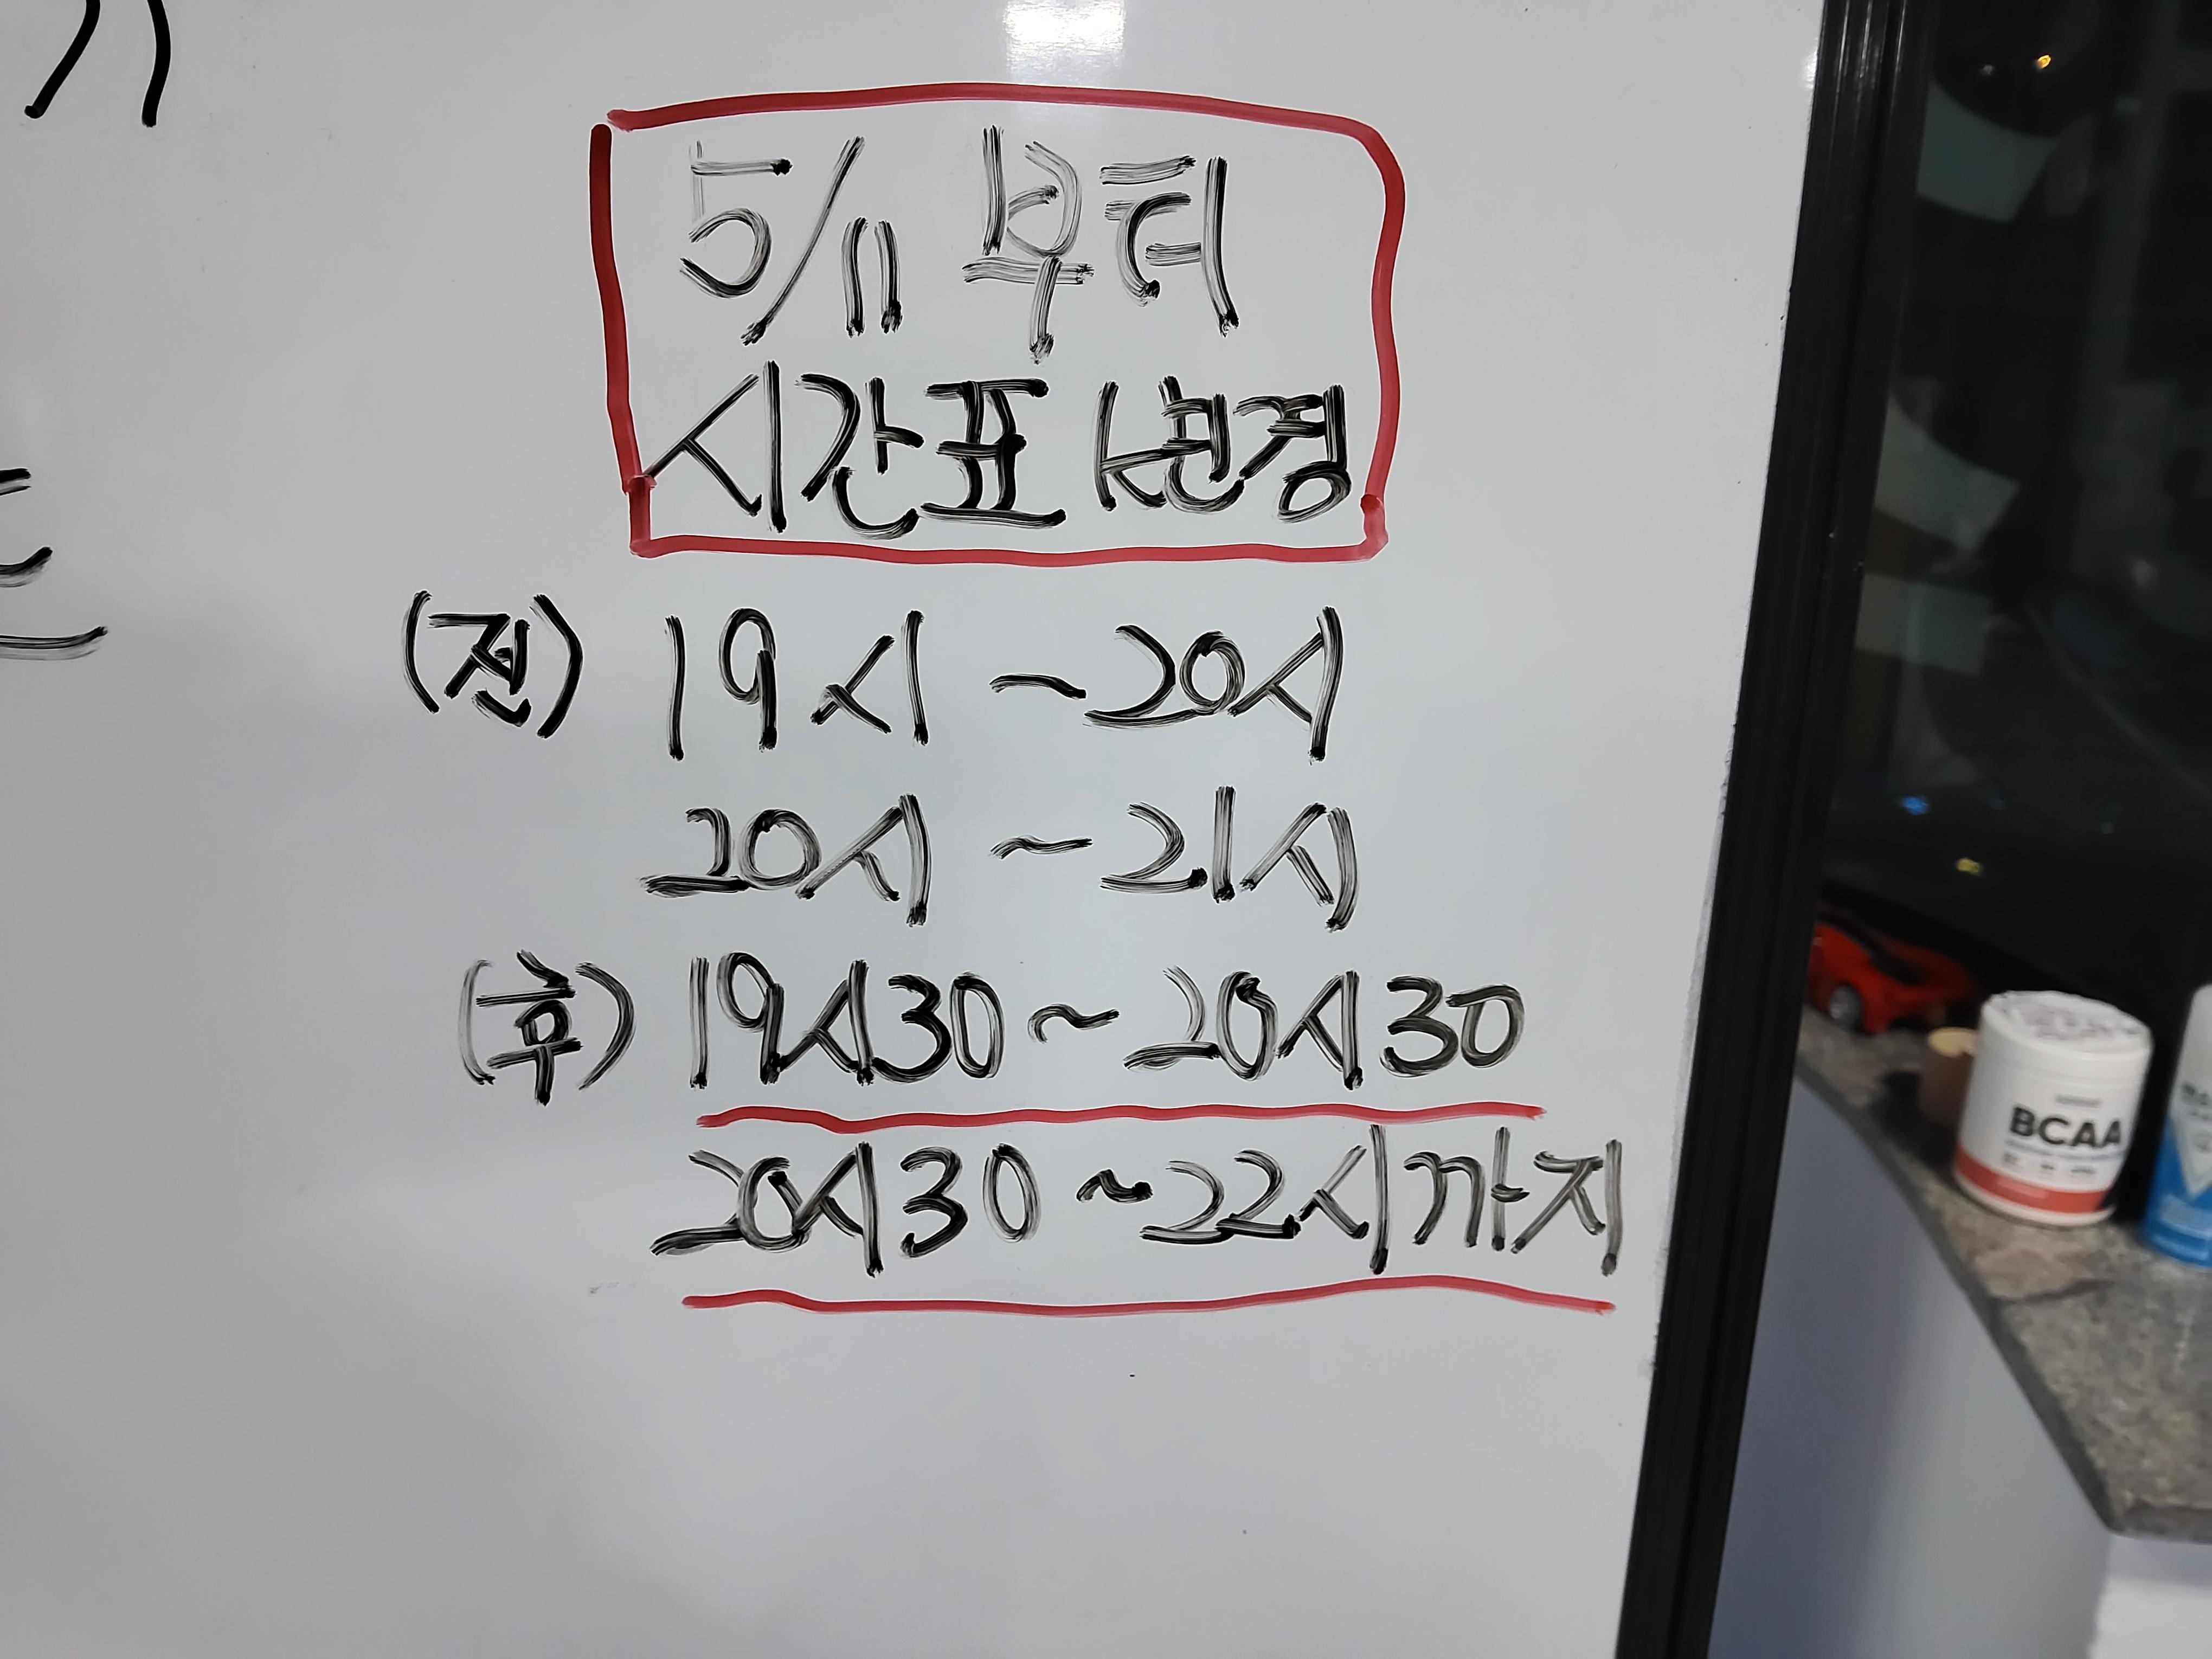 5/11 부터
시간표 변경
(전) 19시 ~ 20시
20시 ~ 21시
(후) 19시30 ~ 20시30
20시30 ~ 22시까지
BCAA